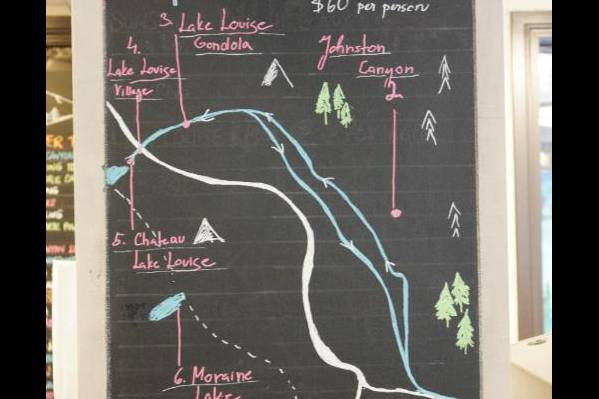 $60 per person
3. Lake Louise
Gondola
4.
Lake Louise
Village
Johnston
Canyon
2
5. Château
Lake Louise
6. Moraine
Lake